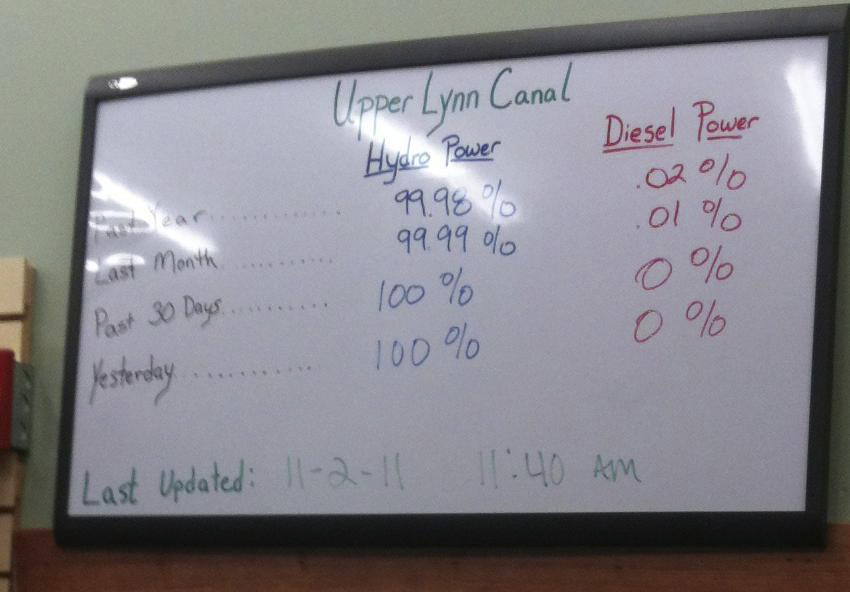 Upper Lynn Canal
Hydro Power Diesel Power
Past Year............. 99.98% .02%
Last Month........... 99.99% .01%
Past 30 Days........... 100% 0%
Yesterday............ 100% 0%
Last Updated: 11-2-11 11:40 AM